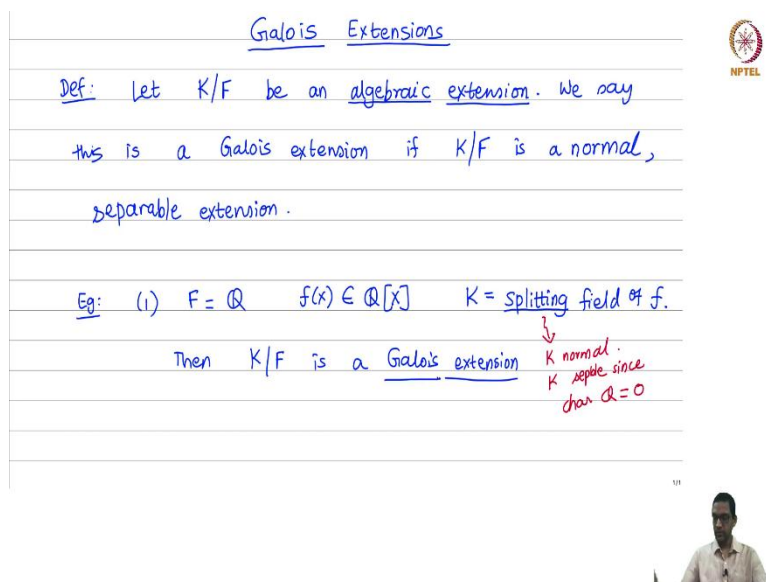 Galois Extensions
NPTEL
Def: Let K/F be an algebraic extension. We say
this is a Galois extension if K/F is a normal,
separable extension.
Eg: (1) F = ℚ f(x) ∈ ℚ[X] K = splitting field of f.
Then K/F is a Galois extension
K normal.
K sepble since
char ℚ = 0
1/1